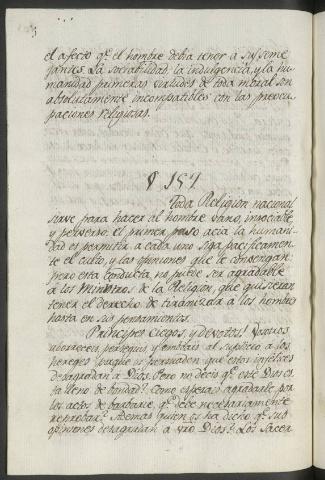 el afecto q.e el hombre debia tener à sus seme
jantes. La sociabilidad: la indulgencia, y la hu-
manidad primeras virtudes de toda moral son
absolutamente incompatibles con las preocu
paciones religiosas.
§ 154.
Toda Religion nacional
sirve para hacer al hombre vano, insociable
y perverso: el primer paso acia la humani-
dad es permitir a cada uno siga pacificamen
te el culto, y las opiniones que le convengan:
pero esta conducta no puede ser agradable
à los Ministros de la Religion, que quisieran
tener el derecho de tiranizar à los hombres
hasta en sus pensamientos.
Principes ciegos, y devotos! vosotros
aborreceis, perseguis y embiais al suplicio a los
hereges porque os persuaden que estos infelices
desagradan à Dios. Pero no decis q.e este Dios es
ta lleno de bondad? Como esperais agradarle por
los actos de barbarie, q.e debe necesariamente
reprobar? Ademas quien os ha dicho q.e sus
opiniones desagradan à vro Dios? Los Sacer